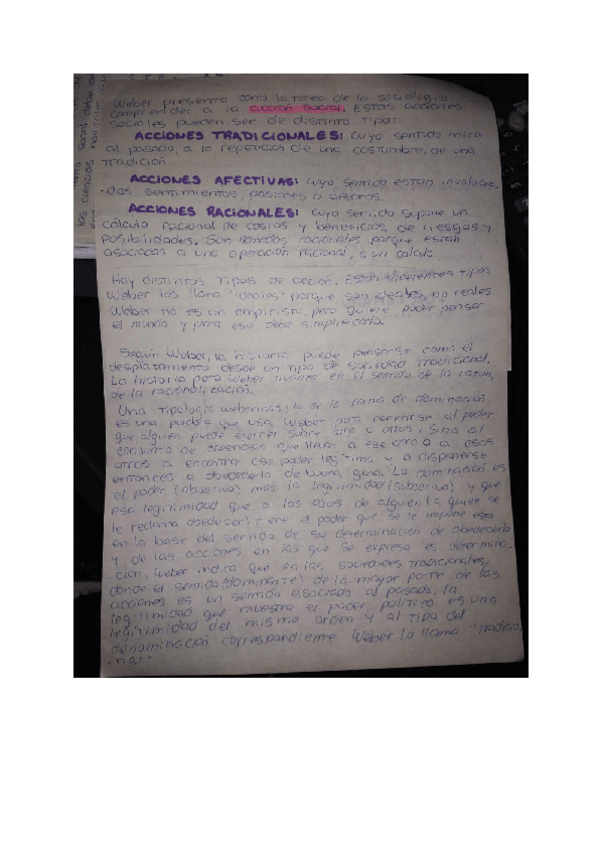 Weber presenta como la tarea de la sociología
comprender a la acción social. Estas acciones
sociales pueden ser de distinto tipo:
ACCIONES TRADICIONALES: Cuyo sentido mira
al pasado, a la repetición de una costumbre, de una
tradición.
ACCIONES AFECTIVAS: Cuyo sentido están involucra-
-dos sentimientos, pasiones o afectos.
ACCIONES RACIONALES: Cuyo sentido supone un
cálculo racional de costos y beneficios, de riesgos y
posibilidades. Son llamados racionales porque están
asociadas a una operación racional, a un cálculo.
Hay distintos tipos de acción. Estos diferentes tipos
Weber los llama "ideales" porque son ideales, no reales
Weber no es un empirista, pero quiere poder pensar
el mundo y para eso debe simplificarlo.
Según Weber, la historia puede pensarse como el
desplazamiento desde un tipo de sociedad tradicional.
La historia para Weber en el sentido de la razón,
de la racionalización.
Una tipología weberiana: la de la forma de dominación
es una palabra que usa Weber para referirse al poder
que alguien puede ejercer sobre otro u otros; Sino al
conjunto de creencias que llevan a ese otro o a esos
otros a encontrar ese poder legítimo y a disponerse
entonces a obedecerlo de buena gana. La dominación es
el poder (objetivo) más la legitimidad (subjetiva) y que
esa legitimidad que a los ojos de alguien (a quien se
le reclama obedecer) tiene el poder que se le impone esta
en la base del sentido de su determinación de obedecerlo
y de las acciones en las que se expresa es determina-
-ción. Weber indica que en las sociedades tradicionales,
donde el sentido (dominante) de la mayor parte de las
acciones es un sentido asociado al pasado, la
legitimidad que muestra el poder político es una
legitimidad del mismo orden y al tipo del
denominación correspondiente Weber lo llama "Tradicio
-nal"